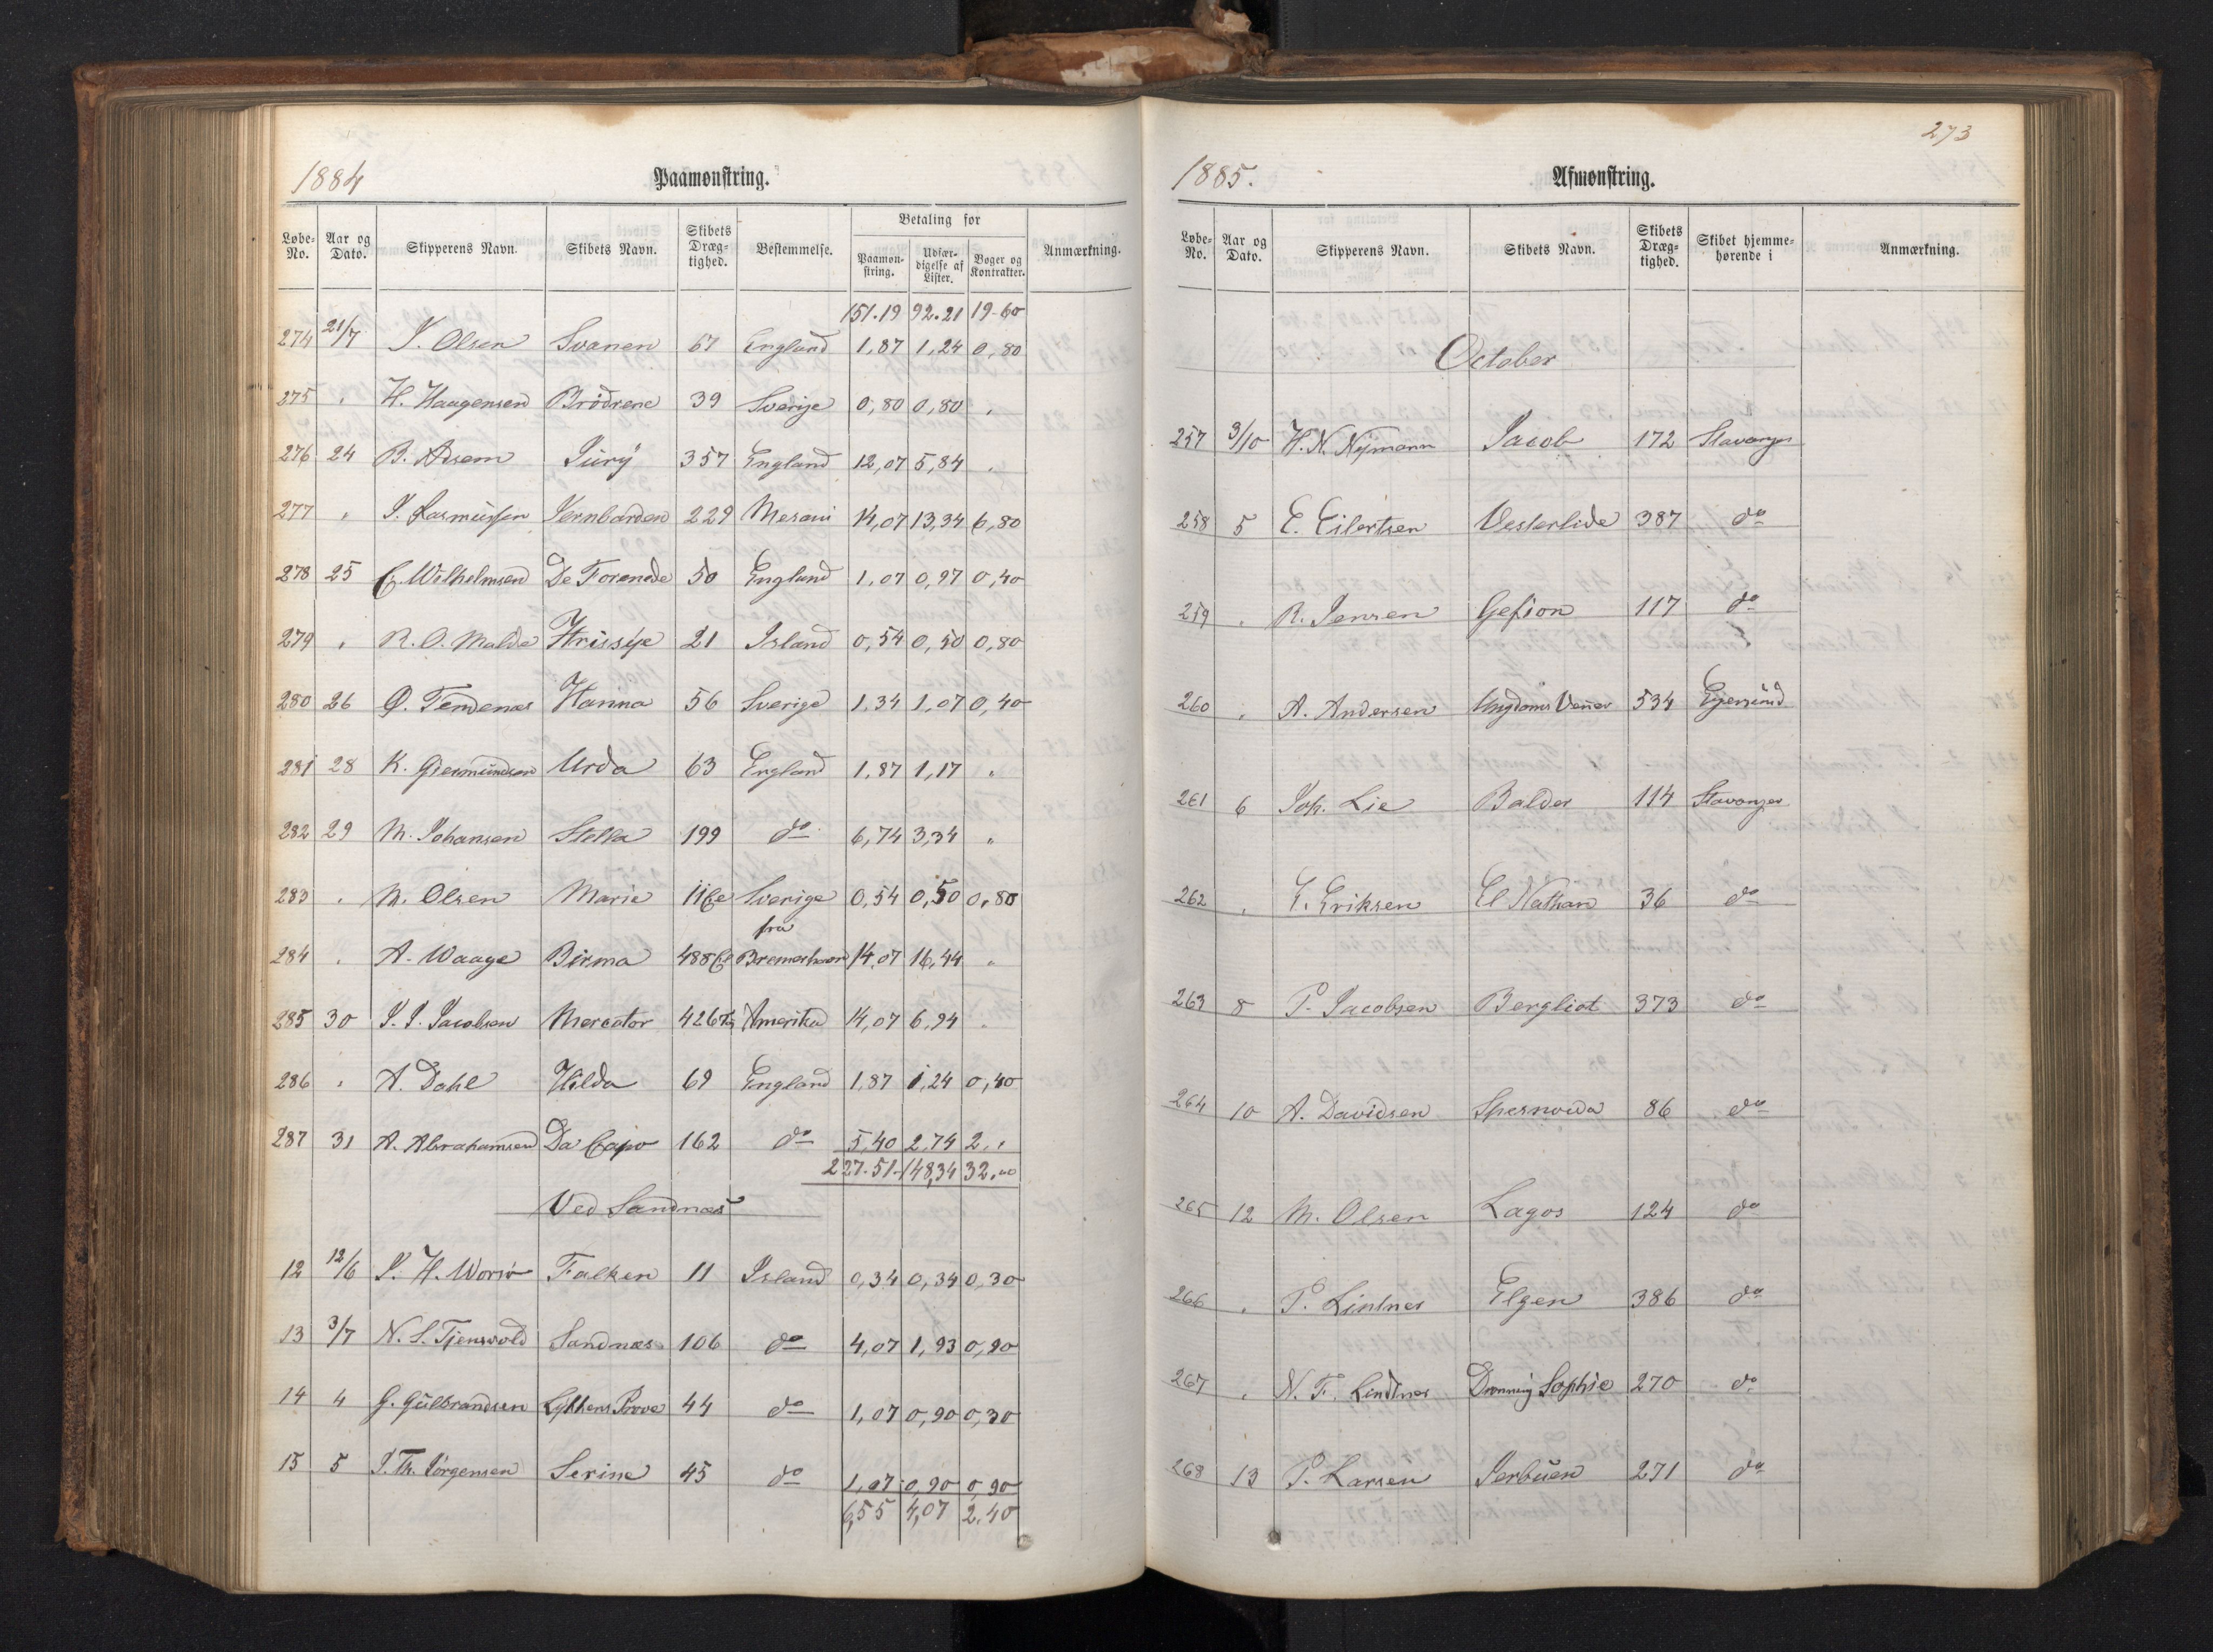 1884 Paamønstring.
Løbe-No. Aar og Dato. Skipperens Navn. Skibets Navn. Skibets Dræg-tighed. Bestemmelse. Betaling for Paamøn-string. Udfær-digelse af Lister. Bøger og Kontrakter. Anmærkning.
151.19 92.21 19-60
274 21/7 J. Olsen Svanen 67 England 1,87 1,24 0,80
275 " H. Haagensen Brödrene 39 Sverige 0,80 0,80 "
276 24 B. Adsem Jury 357 England 12,07 5,84 "
277 " J. Rasmussen Jernbarden 229 14,07 13,34 6,80
278 25 C. Wilhelmsen De Forenede 50 England 1,07 0,97 0,40
279 " R. O. Malde 21 Island 0,54 0,50 0,80
280 26 O. Tendenes Hanna 56 Sverige 1,34 1,07 0,40
281 28 K. Giermundsen Urda 63 England 1,87 1,17 "
282 29 M. Johansen Stella 199 do 6,74 3,34 "
283 " M. Olsen Marie 11 Ce Sverige 0,54 0,50 0,80
284 " A. Waage Birma 488 Ce fra Bremerhaven 14,07 16,44 "
285 30 J. J. Jacobsen Mercator 426 Amerika 14,07 6,94 "
286 " A. Dahl Hilda 69 England 1,87 1,24 0,40
287 31 A. Abrahamsen Da Capo 162 do 5,40 2,74 2.,
227.51 148,34 32.00
Ved Sandnæs
12 12/6 J. H. Worsø Falken 11 Island 0,34 0,34 0,30
13 3/7 N. S. Tjensvold Sandnæs 106 do 4,07 1,93 0,90
14 4 G. Gulbrandsen Lykkens Prøve 44 do 1,07 0,90 0,30
15 5 J. Th. Jörgensen Serine 45 do 1,07 0,90 0,90
6,55 4,07 2.40
273
1885. Afmønstring.
Løbe-No. Aar og Dato. Skipperens Navn. Skibets Navn. Skibets Dræg-tighed. Skibet hjemme-hørende i Anmærkning.
October
257 3/10 H. N. Nymann Jacob 172 Stavanger
258 5 E. Eilertsen Vesterlide 387 do
259 " R. Jensen Gefion 117 do
260 " A. Andersen Ungdoms Venner 534 Egersund
261 6 Joh. Lie Balder 114 Stavanger
262 " E. Eriksen El Nathan 36 do
263 8 P. Jacobsen Bergliot 373 do
264 10 A. Davidsen Spesnova 86 do
265 12 M. Olsen Lagos 124 do
266 " P. Lintner Elgen 386 do
267 " N. F. Lindtner Dronning Sophie 270 do
268 13 P. Larsen Jerbuen 271 do